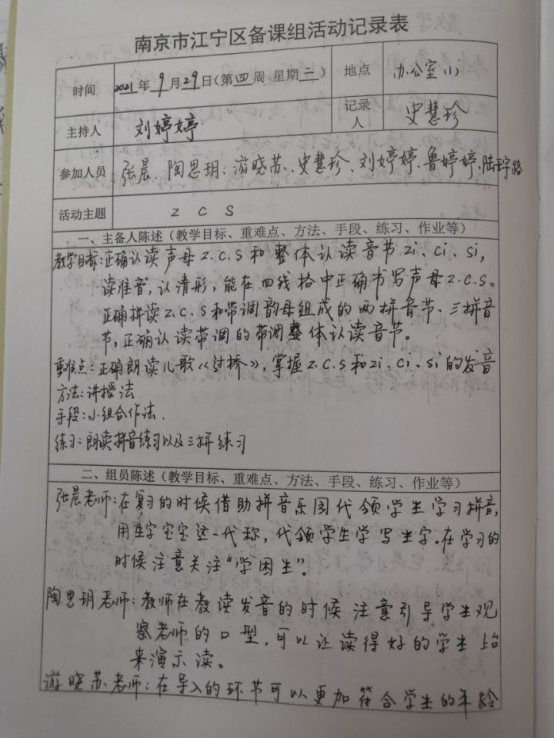 南京市江宁区备课组活动记录表
时间 2021年9月29日(第四周 星期三) 地点 办公室小
主持人 刘婷婷 记录人 史慧珍
参加人员 张晨、陶思玥、游晓苏、史慧珍、刘婷婷、鲁婷婷、陆
活动主题 z c s
一、主备人陈述（教学目标、重难点、方法、手段、练习、作业等）
教学目标:正确认读声母z.c.s和整体认读音节zi、ci、si,
读准音,认清形,能在四线格中正确书写声母z.c.s。
正确拼读z.c.s和带调韵母组成的两拼音节、三拼音
节,正确认读带调的带调整体认读音节。
重难点:正确朗读儿歌《过桥》,掌握z.c.s和zi.ci.si的发音
方法:讲授法
手段:小组合作法.
练习:朗读拼音练习以及三拼练习
二、组员陈述（教学目标、重难点、方法、手段、练习、作业等）
张晨老师:在复习的时候借助拼音乐园代领学生学习拼音,
用生字宝宝这一代称,代领学生学写生字。在学习的
时候注意关注“学困生”。
陶思玥老师:教师在教读发音的时候注意引导学生观
察老师的口型,可以让读得好的学生上台
来演示读。
游晓苏老师:在导入的环节可以更加符合学生的年龄